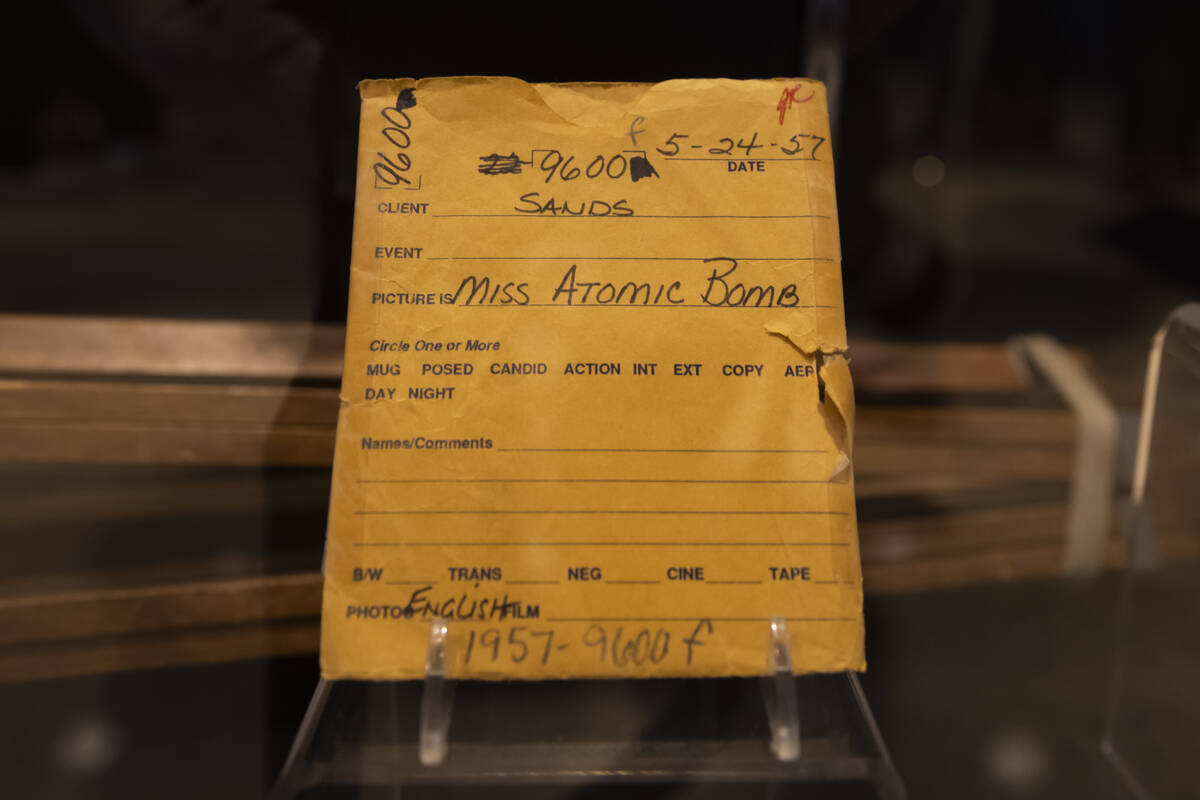 9600
5-24-57
f
9600
DATE
CLIENT SANDS
EVENT
PICTURE IS MISS ATOMIC BOMB
Circle One or More
MUG POSED CANDID ACTION INT EXT COPY AER
DAY NIGHT
Names/Comments
B/W TRANS NEG CINE TAPE
PHOTOG ENGLISH FILM
1957-9600f